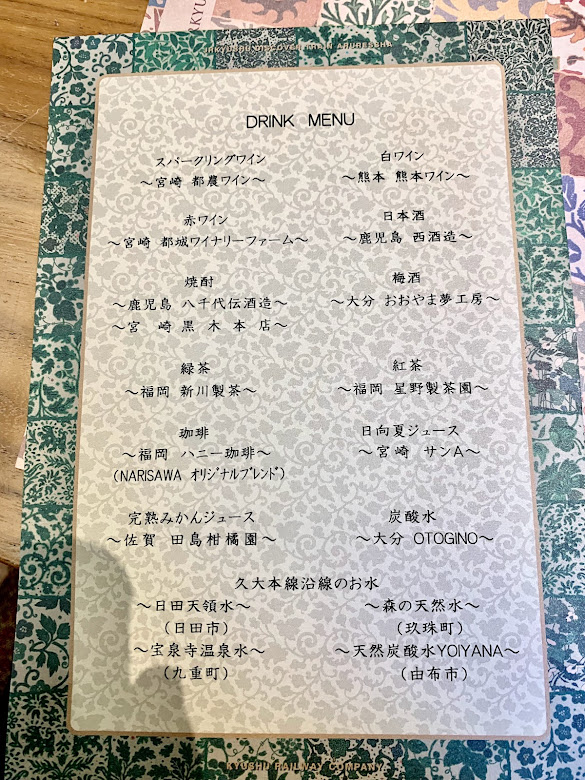 JRKYUSHU DISCOVER TRAIN ARURESSHA
DRINK MENU
スパークリングワイン
～宮崎 都農ワイン～
白ワイン
～熊本 熊本ワイン～
赤ワイン
～宮崎 都城ワイナリーファーム～
日本酒
～鹿児島 西酒造～
焼酎
～鹿児島 八千代伝酒造～
～宮 崎 黒 木 本 店～
梅酒
～大分 おおやま夢工房～
緑茶
～福岡 新川製茶～
紅茶
～福岡 星野製茶園～
珈琲
～福岡 ハニー珈琲～
(NARISAWA オリジナルブレンド)
日向夏ジュース
～宮崎 サンA～
完熟みかんジュース
～佐賀 田島柑橘園～
炭酸水
～大分 OTOGINO～
久大本線沿線のお水
～日田天領水～
(日田市)
～森の天然水～
(玖珠町)
～宝泉寺温泉水～
(九重町)
～天然炭酸水YOIYANA～
(由布市)
KYUSHU RAILWAY COMPANY